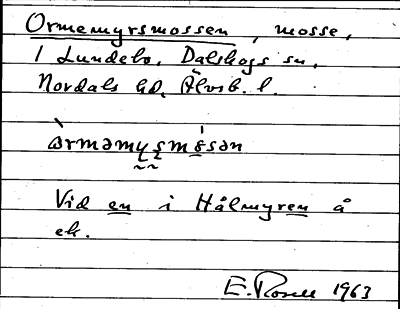 Ormemyrsmossen, mosse,
1 Lundebo, Dalskogs sn,
Nordals hd, Älvsb. l.
Vid en i Hålmyren å
ek.
E. Rosell 1963